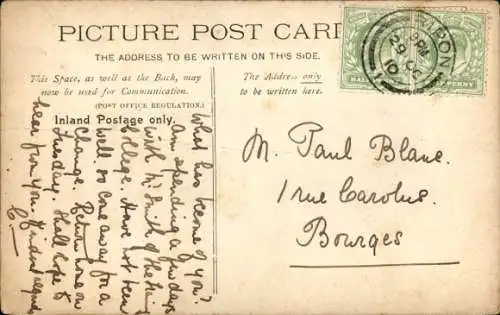 PICTURE POST CARD
THE ADDRESS TO BE WRITTEN ON THIS SIDE.
This Space, as well as the Back, may
now be used for Communication.
(POST OFFICE REGULATION.)
Inland Postage only.
The Address only
to be written here.
HAL
PENNY
RIPON
PM
29 OC
10
What has become of you?
Am spending a few days
with Mr Smith of the Training
College. Have not been
well so came away for a
change. Return home on
Tuesday. Shall hope to
hear from you. Kindest regards
C.
M. Paul Blanc.
1 rue Carolus.
Bourges